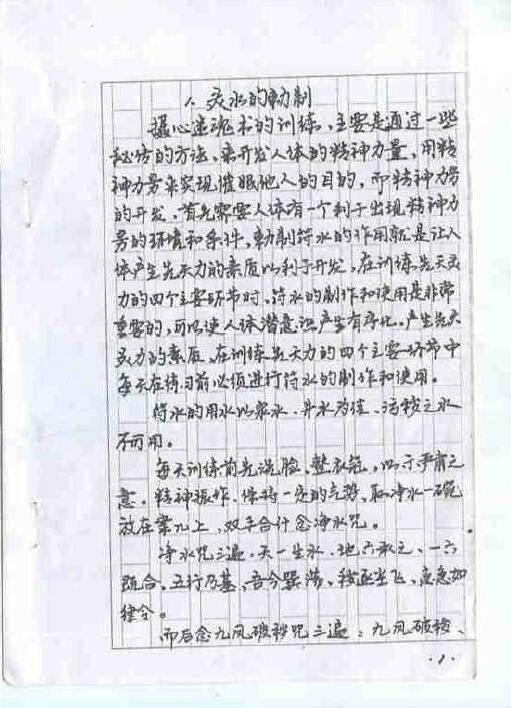 1、灵水的勅制
摄心迷魂术的训练、主要是通过一些
秘传的方法、来开发人体的精神力量，用精
神力量来实现催眠他人的目的，而精神力量
的开发，首先需要人体有一个利于出现精神力
量的环境和条件，勅制符水的作用就是让人
体产生先天力的素质以利于开发，在训练先天灵
力的四个主要环节时、符水的制作和使用是非常
重要的，可以使人体潜意识产生有序化、产生先天
灵力的素质、在训练先天力的四个主要环节中
每天在练习前必须进行符水的制作和使用。
符水的用水以泉水、井水为佳、污秽之水
不可用。
每天训练前先洗脸、整衣冠，以示严肃之
意，精神振作、保持一定的气势，取净水一碗
放在案几上，双手合什念净水咒。
净水咒三遍：天一生水、地六承之、一六
既合、五行乃基、吾今噀荡、秽逐尘飞、急急如
律令。
而后念九凤破秽咒三遍：九凤破秽、
·1·